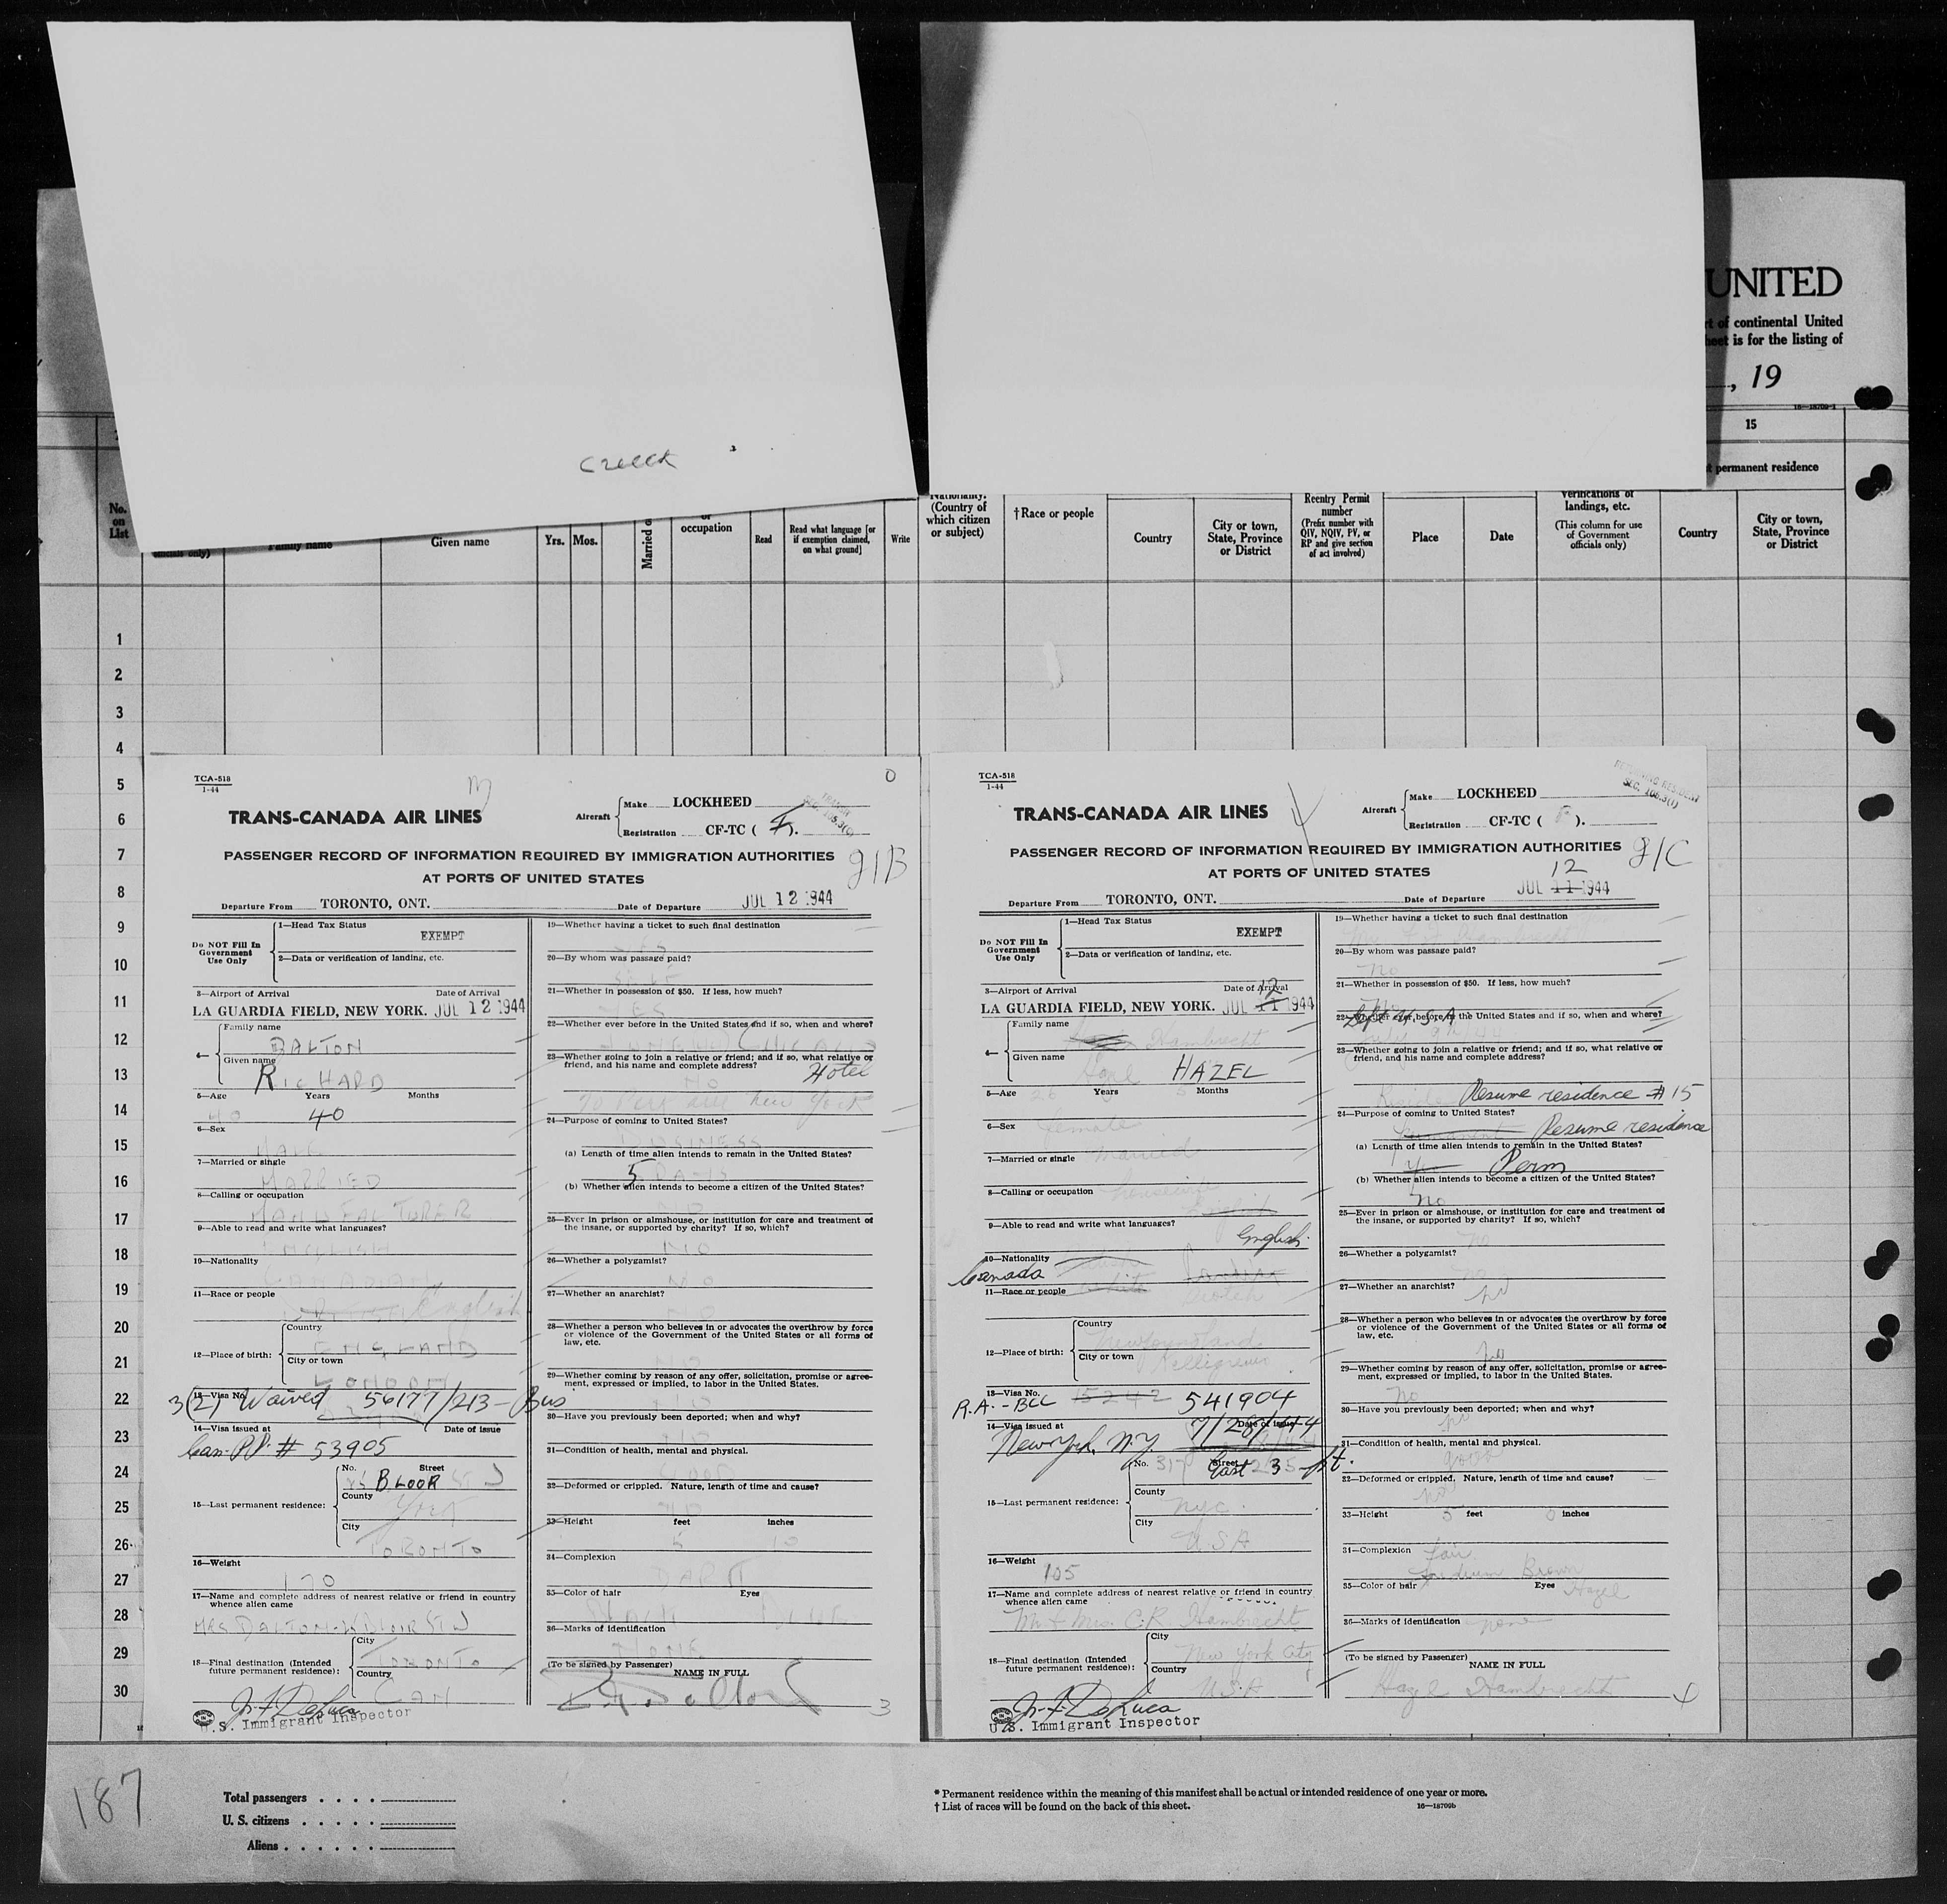 UNITED
rt of continental United
heet is for the listing of
, 19
16—18709-1
15
permanent residence
No.
on
List
Family name
Given name
Yrs.
Mos.
occupation
Read
Read what language [or
if exemption claimed,
on what ground]
Write
Nationality.
(Country of
which citizen
or subject)
†Race or people
Country
City or town,
State, Province
or District
Reentry Permit
number
(Prefix number with
QIV, NQIV, PV, or
RP and give section
of act involved)
Place
Date
Verifications of
landings, etc.
(This column for use
of Government
officials only)
Country
City or town,
State, Province
or District
1
2
3
4
5
6
7
8
9
10
11
12
13
14
15
16
17
18
19
20
21
22
23
24
25
26
27
28
29
30
TCA-518
1-44
TRANS-CANADA AIR LINES
Aircraft
Make LOCKHEED
Registration CF-TC ( ).
PASSENGER RECORD OF INFORMATION REQUIRED BY IMMIGRATION AUTHORITIES
AT PORTS OF UNITED STATES
g1B
Departure From TORONTO, ONT. Date of Departure JUL 12 1944
Do NOT Fill In
Government
Use Only
1—Head Tax Status
EXEMPT
2—Data or verification of landing, etc.
3—Airport of Arrival Date of Arrival
LA GUARDIA FIELD, NEW YORK. JUL 12 1944
4— Family name
DALTON
Given name
RICHARD
5—Age Years Months
40 40
6—Sex
MALE
7—Married or single
MARRIED
8—Calling or occupation
MANUFACTURER
9—Able to read and write what languages?
ENGLISH
10—Nationality
CANADIAN
11—Race or people
English
12—Place of birth:
Country
ENGLAND
City or town
LONDON
13—Visa No.
3(2) Waived 56177/213 - Bus
14—Visa issued at Date of issue
Can. PP. # 53905
15—Last permanent residence:
No. Street
BLOOR ST W
County
York
City
TORONTO
16—Weight
170
17—Name and complete address of nearest relative or friend in country
whence alien came
MRS DALTON
18—Final destination (Intended
future permanent residence):
City
TORONTO
Country
CAN
U.S. Immigrant Inspector
19—Whether having a ticket to such final destination
YES
20—By whom was passage paid?
SELF
21—Whether in possession of $50. If less, how much?
YES
22—Whether ever before in the United States and if so, when and where?
CHICAGO
23—Whether going to join a relative or friend; and if so, what relative or
friend, and his name and complete address?
Hotel
NO
24—Purpose of coming to United States?
BUSINESS
(a) Length of time alien intends to remain in the United States?
5 DAYS
(b) Whether alien intends to become a citizen of the United States?
NO
25—Ever in prison or almshouse, or institution for care and treatment of
the insane, or supported by charity? If so, which?
NO
26—Whether a polygamist?
NO
27—Whether an anarchist?
NO
28—Whether a person who believes in or advocates the overthrow by force
or violence of the Government of the United States or all forms of
law, etc.
NO
29—Whether coming by reason of any offer, solicitation, promise or agree-
ment, expressed or implied, to labor in the United States.
NO
30—Have you previously been deported; when and why?
NO
31—Condition of health, mental and physical.
GOOD
32—Deformed or crippled. Nature, length of time and cause?
NO
33—Height feet inches
5 10
34—Complexion
DARK
35—Color of hair Eyes
36—Marks of identification
NONE
(To be signed by Passenger) NAME IN FULL
3
TCA-518
1-44
TRANS-CANADA AIR LINES
Aircraft
Make LOCKHEED
Registration CF-TC ( ).
RETURNING RESIDENT
PASSENGER RECORD OF INFORMATION REQUIRED BY IMMIGRATION AUTHORITIES
AT PORTS OF UNITED STATES
g1C
12
Departure From TORONTO, ONT. Date of Departure JUL 11 1944
Do NOT Fill In
Government
Use Only
1—Head Tax Status
EXEMPT
2—Data or verification of landing, etc.
3—Airport of Arrival Date of Arrival
12
LA GUARDIA FIELD, NEW YORK. JUL 11 1944
4— Family name
Hambrecht
Given name
Hazel HAZEL
5—Age Years Months
26
6—Sex
female
7—Married or single married
8—Calling or occupation
housewife
9—Able to read and write what languages?
English
10—Nationality
Canada
11—Race or people
Scotch
12—Place of birth:
Country
Newfoundland
City or town
Kelligrews
13—Visa No.
R.A. - BCC 15242 541904
14—Visa issued at Date of issue
New York, N.Y. 7/28/44
15—Last permanent residence:
No. Street
317 East 3 St.
County
NYC.
City
USA
16—Weight
105
17—Name and complete address of nearest relative or friend in country
whence alien came
Mr & Mrs. C.R. Hambrecht
18—Final destination (Intended
future permanent residence):
City
New York City
Country
USA
U.S. Immigrant Inspector
19—Whether having a ticket to such final destination
20—By whom was passage paid?
No
21—Whether in possession of $50. If less, how much?
No
22—Whether ever before in the United States and if so, when and where?
23—Whether going to join a relative or friend; and if so, what relative or
friend, and his name and complete address?
Resume residence #15
24—Purpose of coming to United States?
Resume residence
(a) Length of time alien intends to remain in the United States?
Perm
(b) Whether alien intends to become a citizen of the United States?
No
25—Ever in prison or almshouse, or institution for care and treatment of
the insane, or supported by charity? If so, which?
no
26—Whether a polygamist?
no
27—Whether an anarchist?
no
28—Whether a person who believes in or advocates the overthrow by force
or violence of the Government of the United States or all forms of
law, etc.
29—Whether coming by reason of any offer, solicitation, promise or agree-
ment, expressed or implied, to labor in the United States.
No
30—Have you previously been deported; when and why?
no
31—Condition of health, mental and physical.
good
32—Deformed or crippled. Nature, length of time and cause?
no
33—Height 5 feet 0 inches
34—Complexion fair
35—Color of hair Brown Eyes Hazel
36—Marks of identification none
(To be signed by Passenger)
NAME IN FULL
Hazel Hambrecht
187
Total passengers . . . .
U. S. citizens . . . . .
Aliens . . . . . .
* Permanent residence within the meaning of this manifest shall be actual or intended residence of one year or more.
† List of races will be found on the back of this sheet.
16—18709b